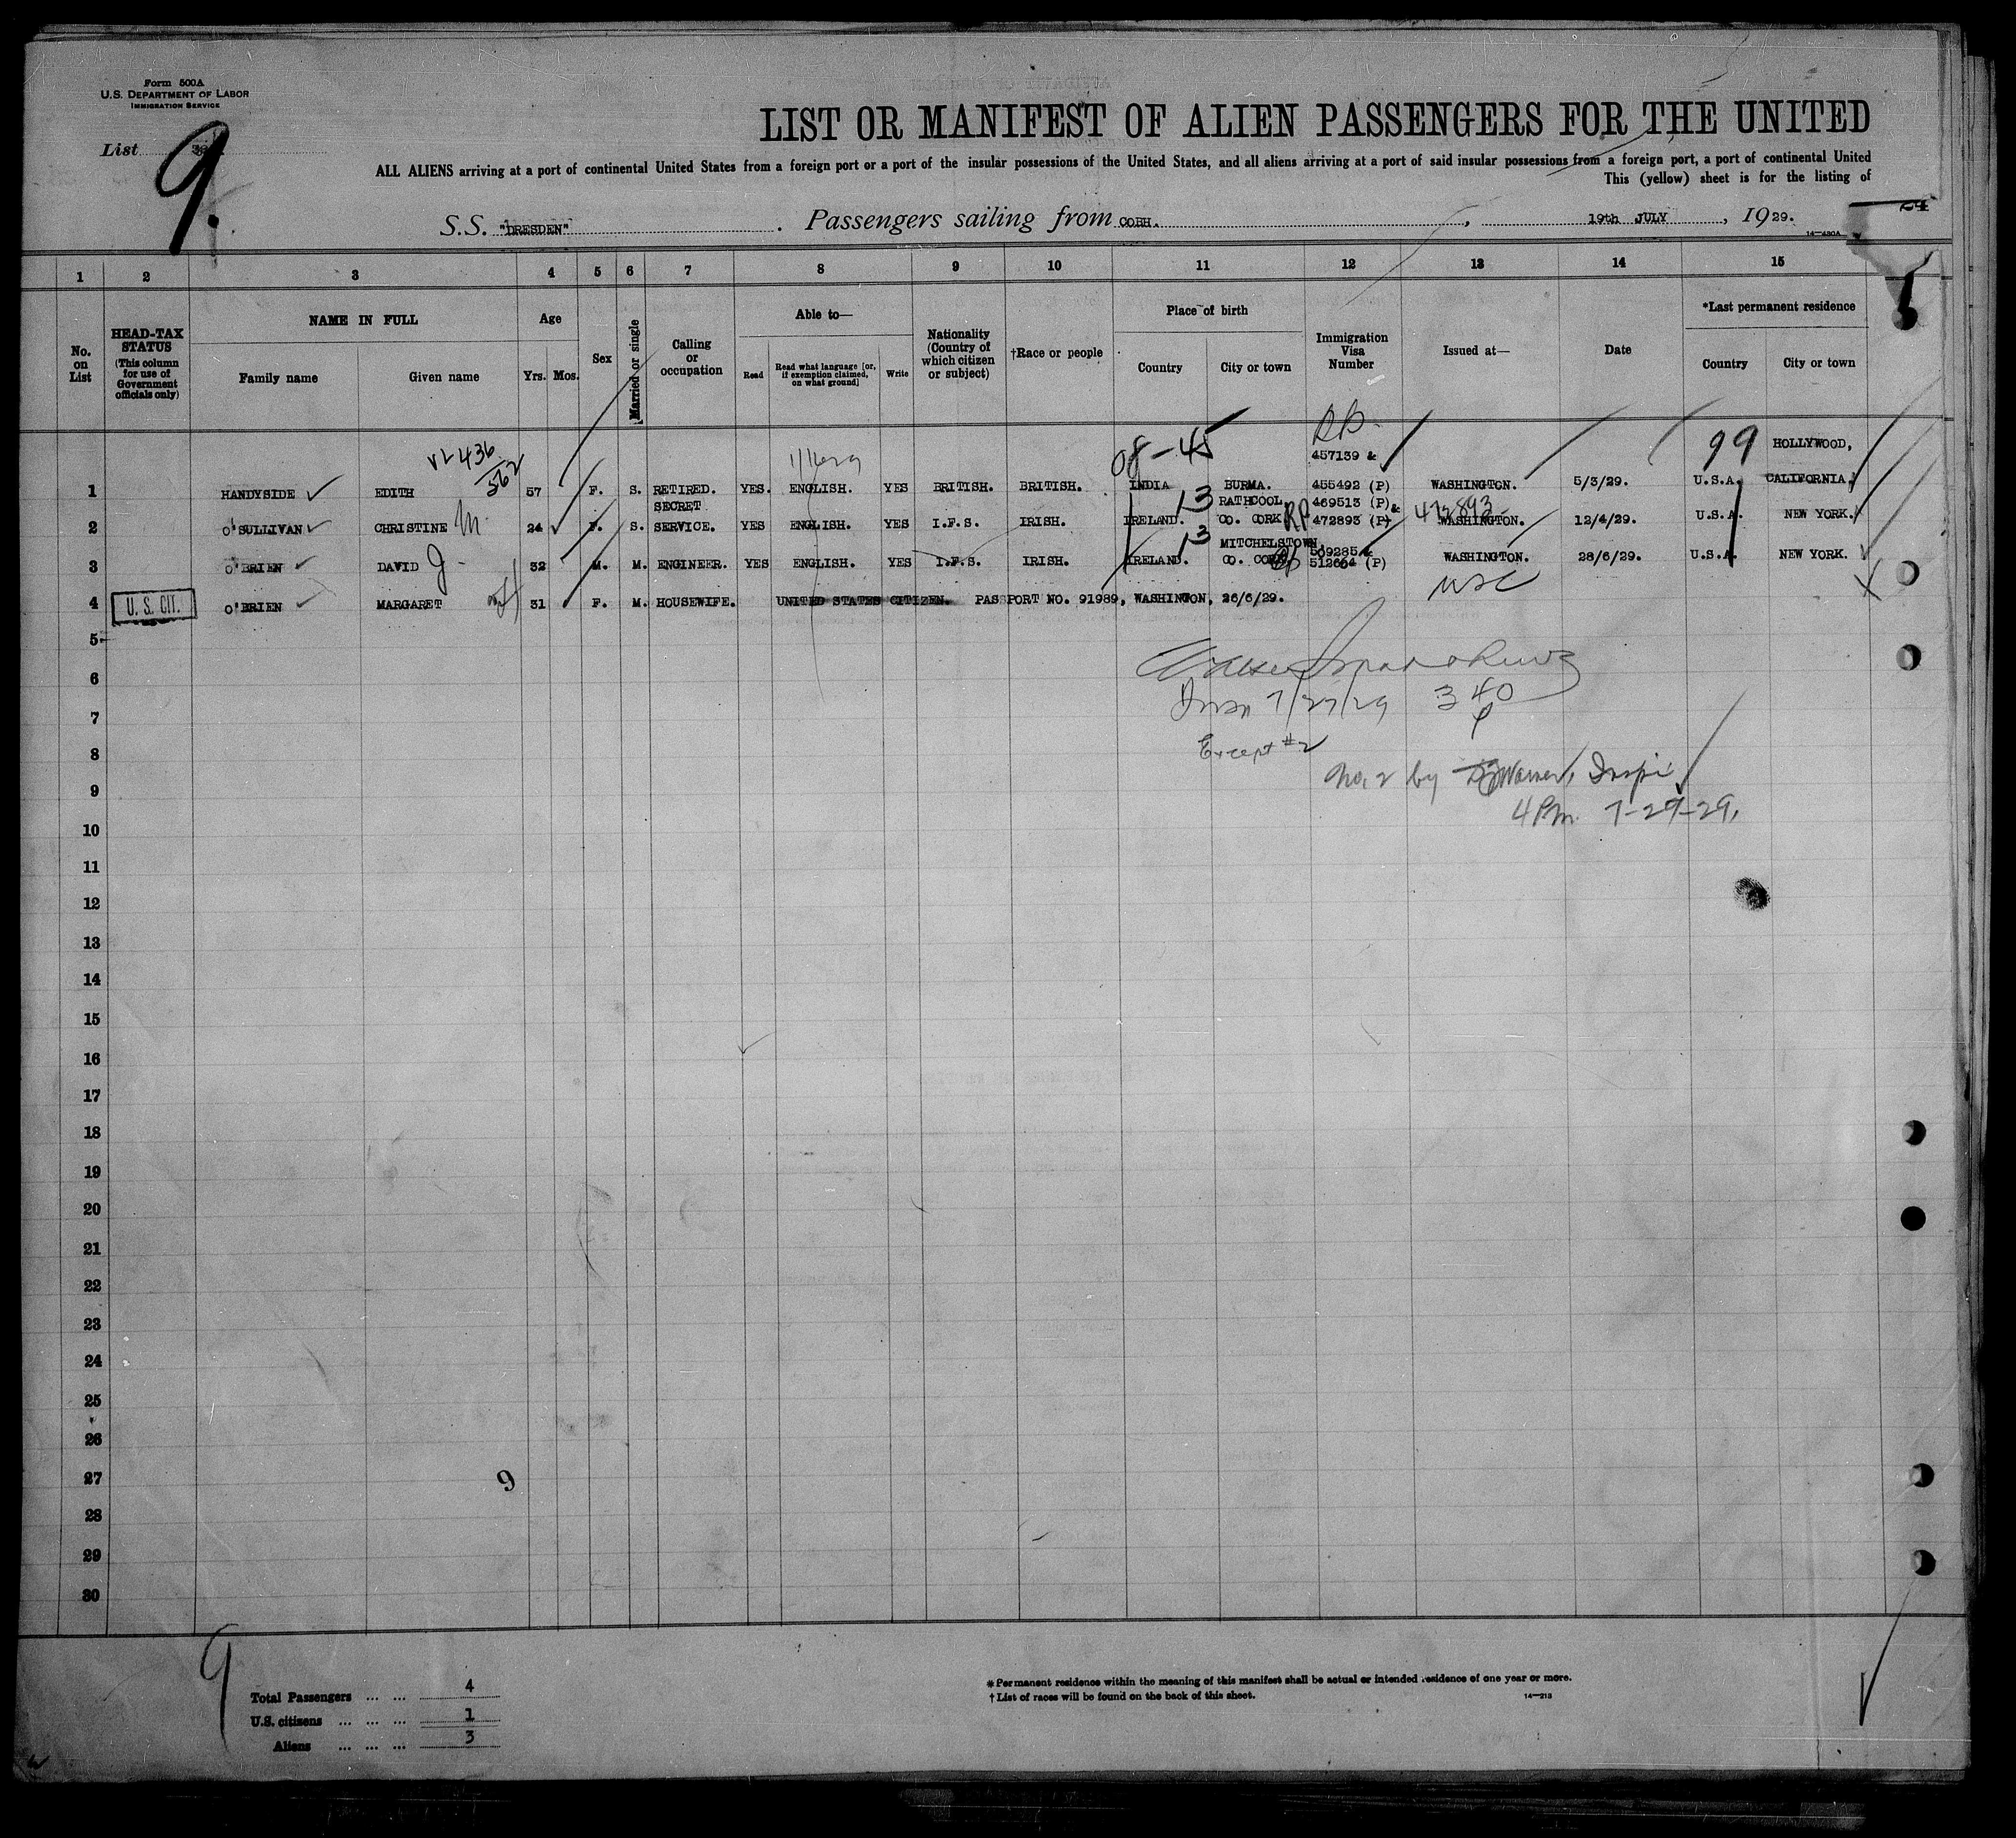 Form 500A
U.S. DEPARTMENT OF LABOR
IMMIGRATION SERVICE
List
9.
LIST OR MANIFEST OF ALIEN PASSENGERS FOR THE UNITED
ALL ALIENS arriving at a port of continental United States from a foreign port or a port of the insular possessions of the United States, and all aliens arriving at a port of said insular possessions from a foreign port, a port of continental United
This (yellow) sheet is for the listing of
S.S. "DRESDEN". Passengers sailing from COBH., 19th JULY, 1929.
14—430A
1 2 3 4 5 6 7 8 9 10 11 12 13 14 15
No. on List
HEAD-TAX STATUS (This column for use of Government officials only)
NAME IN FULL
Family name Given name
Age
Yrs. Mos.
Sex
Married or single
Calling or occupation
Able to—
Read
Read what language [or, if exemption claimed, on what ground]
Write
Nationality (Country of which citizen or subject)
†Race or people
Place of birth
Country City or town
Immigration Visa Number
Issued at—
Date
*Last permanent residence
Country City or town
436
562
08-45
RP.
457139 &
99 HOLLYWOOD,
1 HANDYSIDE EDITH 57 F. S. RETIRED. YES. ENGLISH. YES BRITISH. BRITISH. INDIA BURMA. 455492 (P) WASHINGTON. 5/3/29. U.S.A. CALIFORNIA.
SECRET 13 RATHCOOL, 469513 (P) & 472893
2 O'SULLIVAN CHRISTINE M 24 F. S. SERVICE. YES ENGLISH. YES I.F.S. IRISH. IRELAND. CO. CORK RP 472893 (P) WASHINGTON. 12/4/29. U.S.A. NEW YORK.
13 MITCHELSTOWN, 509285 &
3 O'BRIEN DAVID J. 32 M. M. ENGINEER. YES ENGLISH. YES I.F.S. IRISH. IRELAND. CO. CORK 512664 (P) WASHINGTON. 28/6/29. U.S.A. NEW YORK.
4 U.S. CIT. O'BRIEN MARGARET 31 F. M. HOUSEWIFE. UNITED STATES CITIZEN. PASSPORT NO. 91989, WASHINTON, 26/6/29. USC
5
6
7 7/27/29 3 40 P
8 Except #2
No. 2 by Warner, Inspr
9
4 Pm. 7-29-29.
10
11
12
13
14
15
16
17
18
19
20
21
22
23
24
25
26
27 9
28
29
30
9
Total Passengers ... ... 4
U.S. citizens ... ... ... 1
Aliens ... ... ... 3
* Permanent residence within the meaning of this manifest shall be actual or intended residence of one year or more.
† List of races will be found on the back of this sheet.
14—213